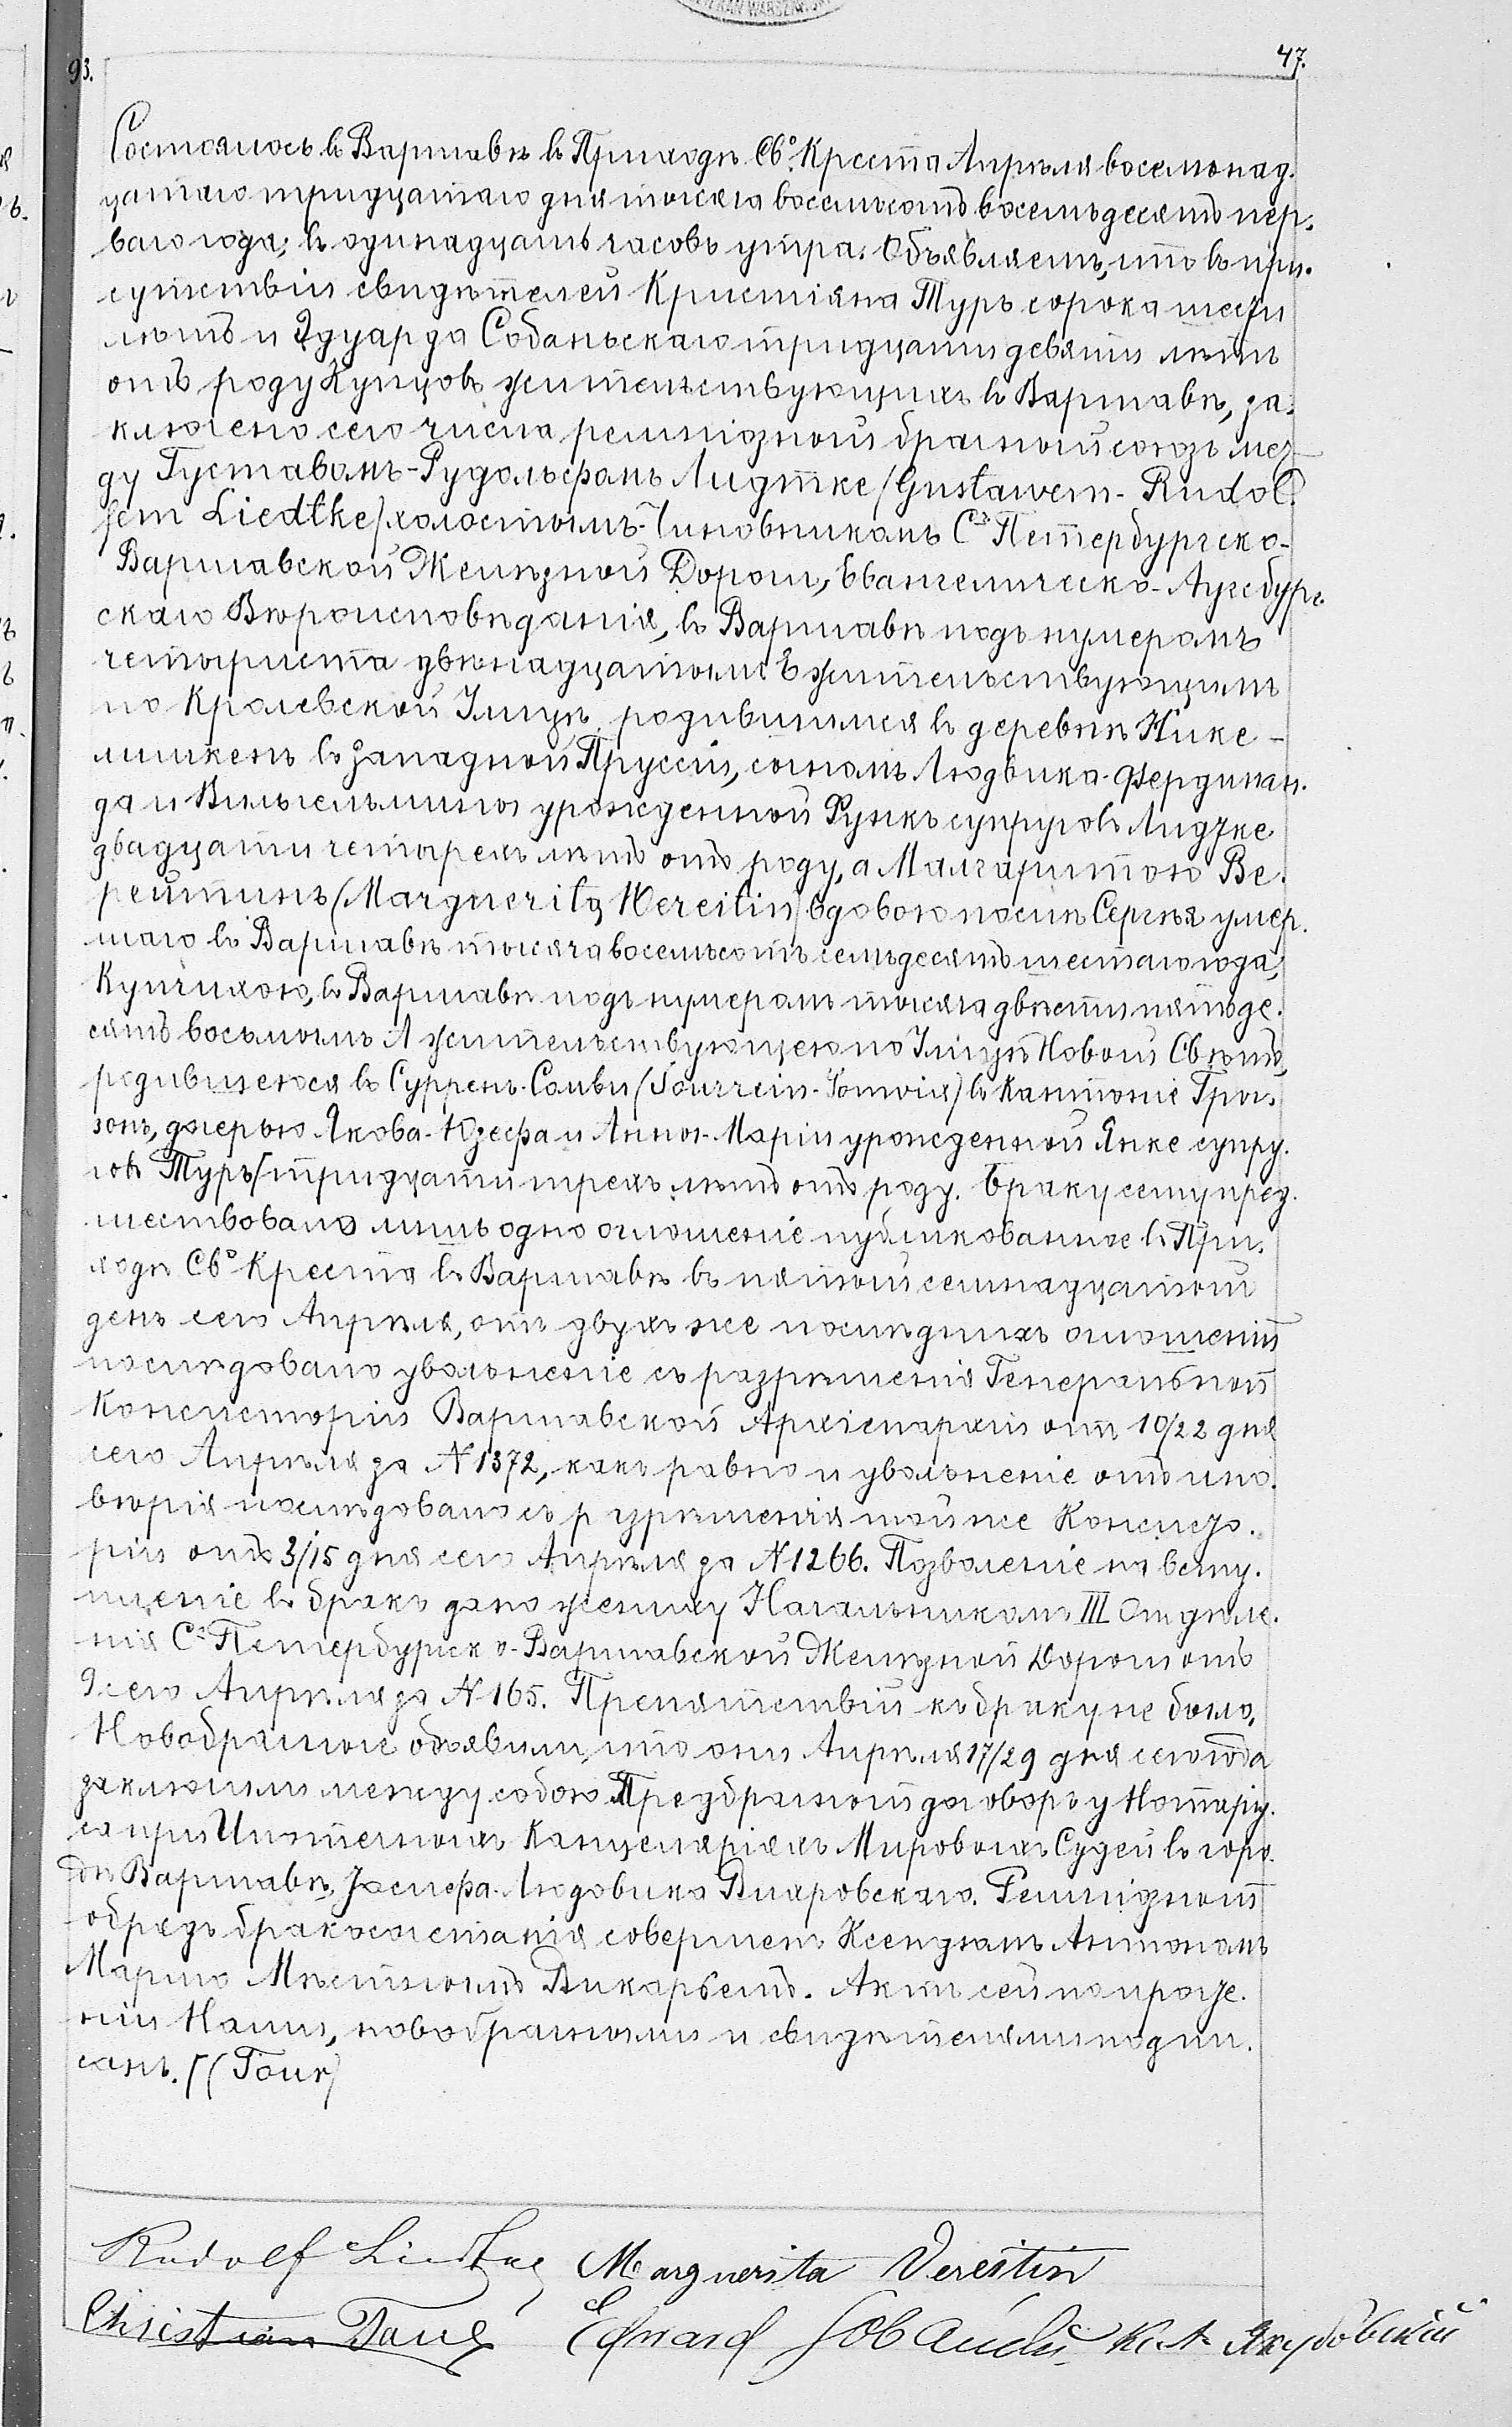 93.
47.
Состоялось въ Варшавѣ въ Приходѣ Свº Креста Апрѣля восемнад.
цатаго тридцатаго дня тысяча восемьсотъ восемьдесятъ пер.
ваго года; въ одинадцать часовъ утра. Объявляемъ, что въ при.
сутствіи свидѣтелей Кристіяна Туръ сорока шести
лѣтъ и Эдуарда Собаньскаго тридцати девяти лѣтъ
отъ роду Купцовъ жительствующихъ въ Варшавѣ, за.
ключено сего числа религіозный брачный союзъ меж
ду Густавомъ-Рудольфомъ Лидтке (Gustawem-Rudol
fem Liedtke) холостымъ-Чиновникомъ Сº Петербургско-
Варшавской Желѣзной Дороги, Евангелическо-Аугсбург
скаго Вѣроисповѣданія, въ Варшавѣ подъ нумеромъ
четыриста двѣнадцатымъ Е жительствующимъ
по Кролевской Улицѣ, родившимся въ деревнѣ Нике-
лишкенъ въ Западной Пруссіи, сыномъ Людвика-Фердинан.
да и Вильгельмины урожденной Функъ супруговъ Лидтке
двадцати четырехъ лѣтъ отъ роду, а Малгаритою Ве.
рейтинъ (Margueritą Wereitin) вдовою послѣ Сергѣя умер.
шаго въ Варшавѣ тысяча восемьсотъ семьдесятъ шестаго года,
Купчихою, въ Варшавѣ подъ нумеромъ тысяча двѣсти пятьде.
сятъ восьмымъ А жительствующею по Улицѣ Новой Свѣтъ,
родившеюся въ Суррень-Сомви (Sourrein-Somvix) въ Кантонѣ Гри.
зонъ, дочерью Якова-Юзефа и Анны-Маріи урожденной Янке супру.
говъ Туръ/тридцати трехъ лѣтъ отъ роду. Браку сему пред.
шествовало лишь одно оглошеніе публикованное въ При.
ходѣ Свº Креста въ Варшавѣ въ пятый семнадцатый
день сего Апрѣля, отъ двухъ же послѣднихъ оглошеній
послѣдовало увольненіе съ разрѣшенія Генеральной
Консисторіи Варшавской Архіепархіи отъ 10/22 дня
сего Апрѣля за N 1372, какъ равно и увольненіе отъ ино.
вѣрія послѣдовало съ разрѣшенія той же Консисто.
ріи отъ 3/15 дня сего Апрѣля за N 1266. Позволеніе на всту.
пленіе въ бракъ дано жениху Начальникомъ III Отдѣле.
нія Сº Петербурско-Варшавской Желѣзной Дороги отъ
9 сего Апрѣля за N 165. Препятствій къ браку не было.
Новобрачные объявили, что они Апрѣля 17/29 дня сего года
заключили между собою Предбрачный договоръ у Нотаріу.
са при Ипотечныхъ Канцеляріяхъ Мировыхъ Судей въ горо.
дѣ Варшавѣ, Іосифа-Людовика Влаховскаго. Религіозный
обрядъ бракосочетанія совершенъ Ксендзомъ Антономъ
Марло Мѣстнымъ Викаріемъ. Актъ сей по прочте.
ніи Нами, новобрачными и свидѣтелями подпи.
санъ. /(Tour)
Rudolf Liedtke Marguerita Vereitin
Christian Edward Sobański К. А. Якубовскій